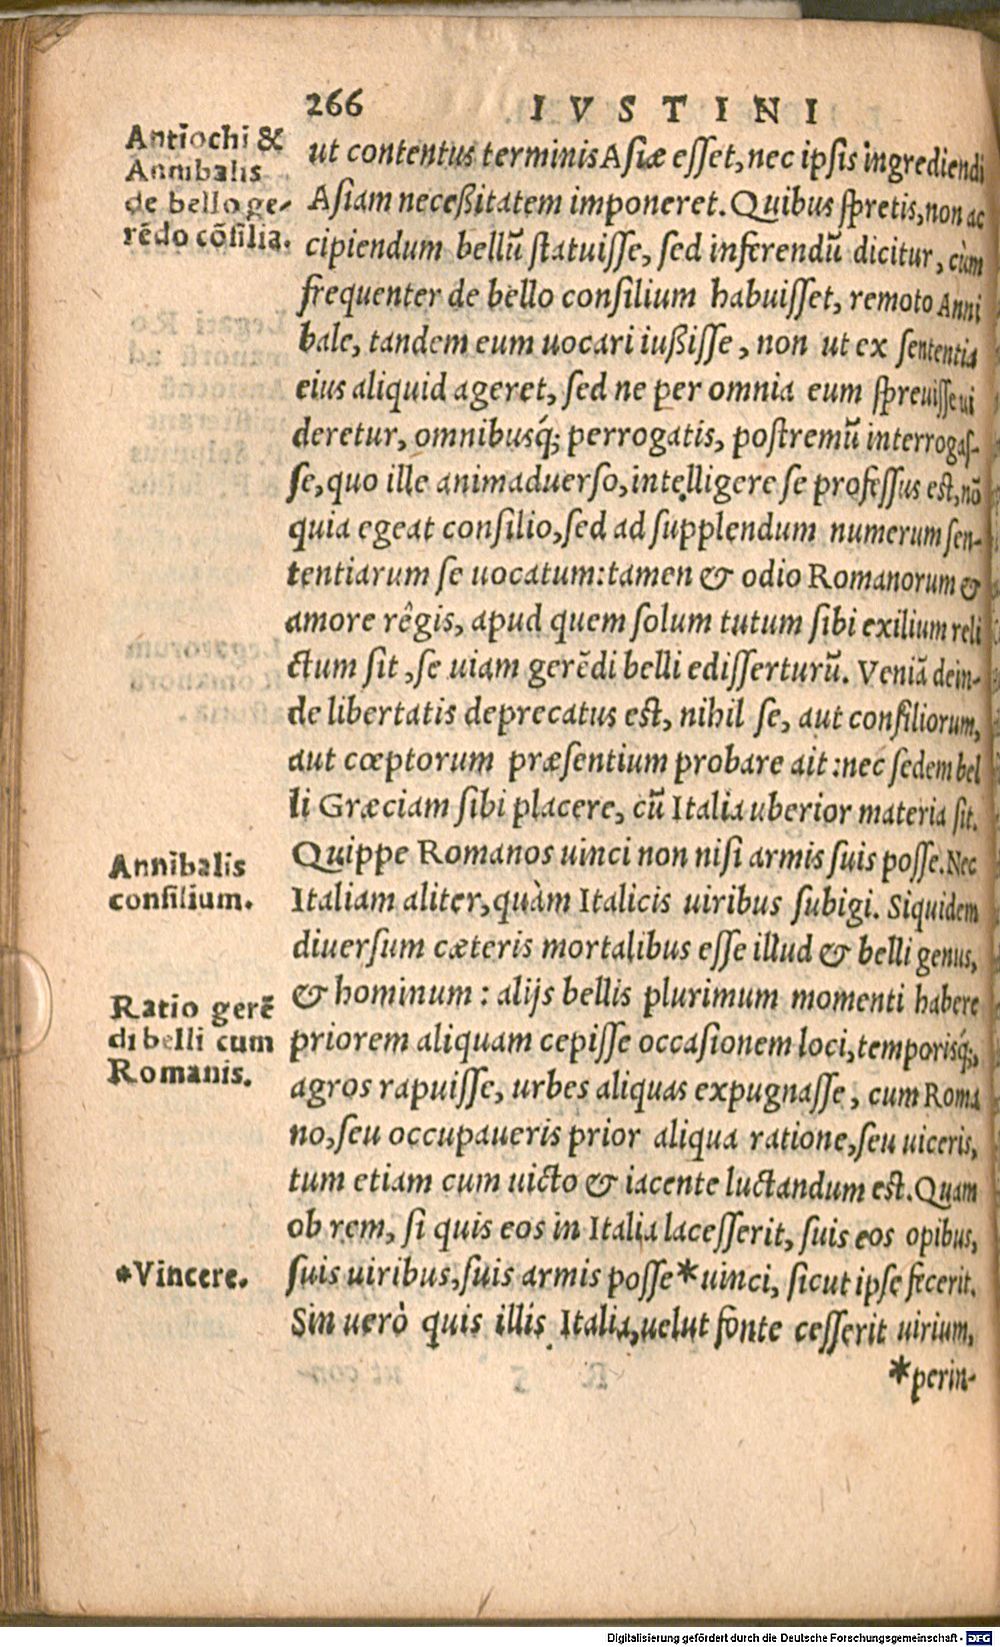 266 IVSTINI
Antiochi &
Annibalis
de bello ge-
rẽdo cõsilia.
ut contentus terminis Asiæ esset, nec ipsis ingrediendi
Asiam necessitatem imponeret. Quibus spretis, non ac
cipiendum bellũ statuisse, sed inferendũ dicitur, cùm
frequenter de bello consilium habuisset, remoto Anni
bale, tandem eum uocari iußisse, non ut ex sententia
eius aliquid ageret, sed ne per omnia eum spreuisse ui
deretur, omnibusq́; perrogatis, postremũ interrogas-
se, quo ille animaduerso, intelligere se professus est, nõ
quia egeat consilio, sed ad supplendum numerum sen-
tentiarum se uocatum: tamen & odio Romanorum &
amore rêgis, apud quem solum tutum sibi exilium reli
ctum sit, se uiam gerẽdi belli edisserturũ. Veniã dein-
de libertatis deprecatus est, nihil se, aut consiliorum,
aut cœptorum præsentium probare ait: nec sedem bel
li Græciam sibi placere, cũ Italia uberior materia sit.
Annibalis
consilium.
Quippe Romanos uinci non nisi armis suis posse. Nec
Italiam aliter, quàm Italicis uiribus subigi. Siquidem
diuersum cæteris mortalibus esse illud & belli genus,
Ratio gerẽ
di belli cum
Romanis.
& hominum: alijs bellis plurimum momenti habere
priorem aliquam cepisse occasionem loci, temporisq́;,
agros rapuisse, urbes aliquas expugnasse, cum Roma
no, seu occupaueris prior aliqua ratione, seu uiceris,
tum etiam cum uicto & iacente luctandum est. Quam
ob rem, si quis eos in Italia lacesserit, suis eos opibus,
*Vincere.
suis uiribus, suis armis posse * uinci, sicut ipse fecerit.
Sin uerò quis illis Italia, uelut fonte cesserit uirium,
*perin-
Digitalisierung gefördert durch die Deutsche Forschungsgemeinschaft - DFG